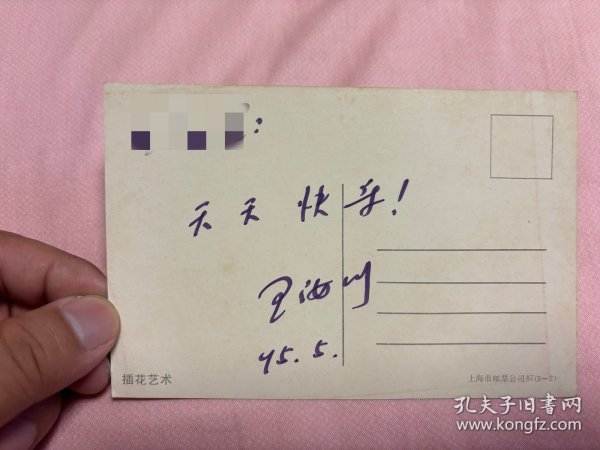 :
天天快乐!
王汝川
95.5.
插花艺术
上海市邮票公司87(3—2)
孔夫子旧书网
www.kongfz.com